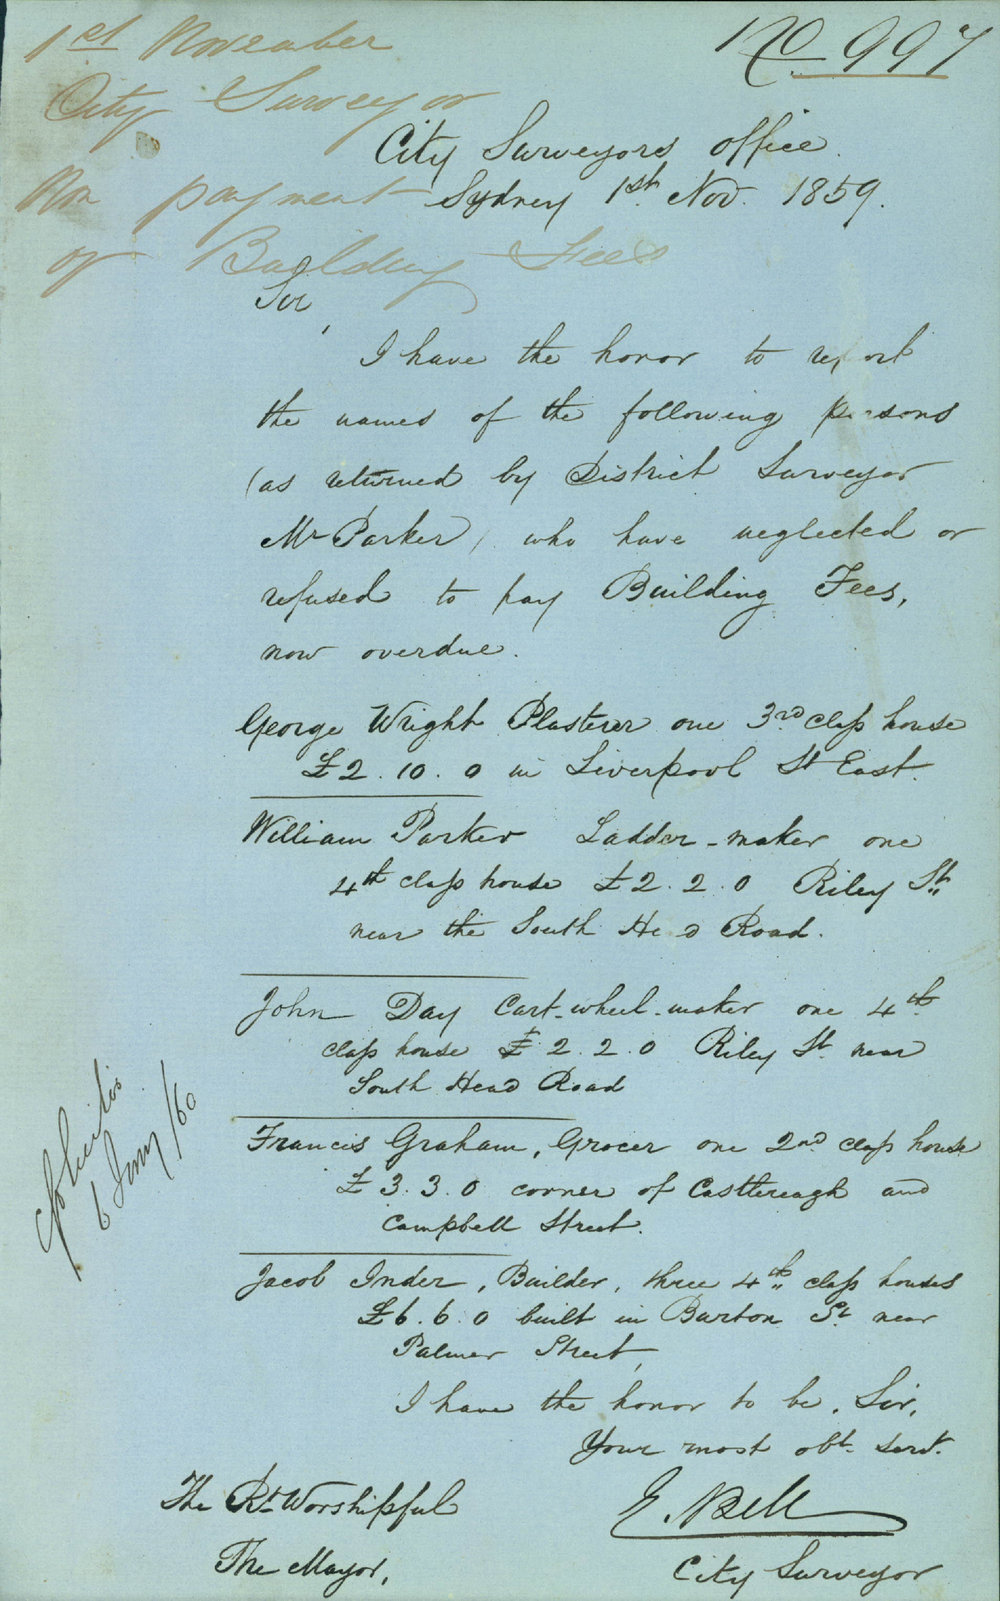 1st November
No 997
City Surveyor
City Surveyors Office
Non payment
Sydney 1st Nov. 1859.
of Building Fees
Sir,
I have the honor to report
the names of the following persons
(as returned by District Surveyor
Mr Parker) who have neglected or
refused to pay Building Fees,
now overdue.
George Wright Plasterer one 3rd class house
£2.10.0 in Liverpool St East.
William Parker Ladder-maker one
4th class house £2.2.0 Riley St.
near the South Head Road.
John Day Cart-wheel-maker one 4th
class house £2.2.0 Riley St. near
South Head Road
Francis Graham, Grocer one 2nd class house
£3.3.0 corner of Castlereagh and
Campbell Street.
Jacob Inder, Builder, three 4th class houses
£6.6.0 built in Burton St near
Palmer Street,
I have the honor to be, Sir,
Your most obt. servt.
The Rt Worshipful
E. Bell
The Mayor,
City Surveyor
6 Jany /60